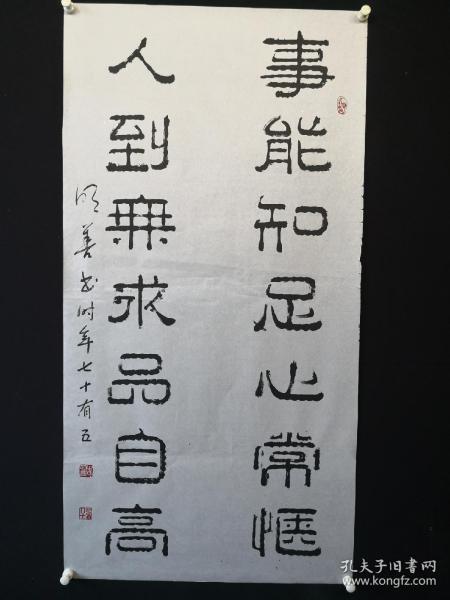 事能知足心常惬
人到無求品自高
明善书时年七十有五
孔夫子旧书网
www.kongfz.com